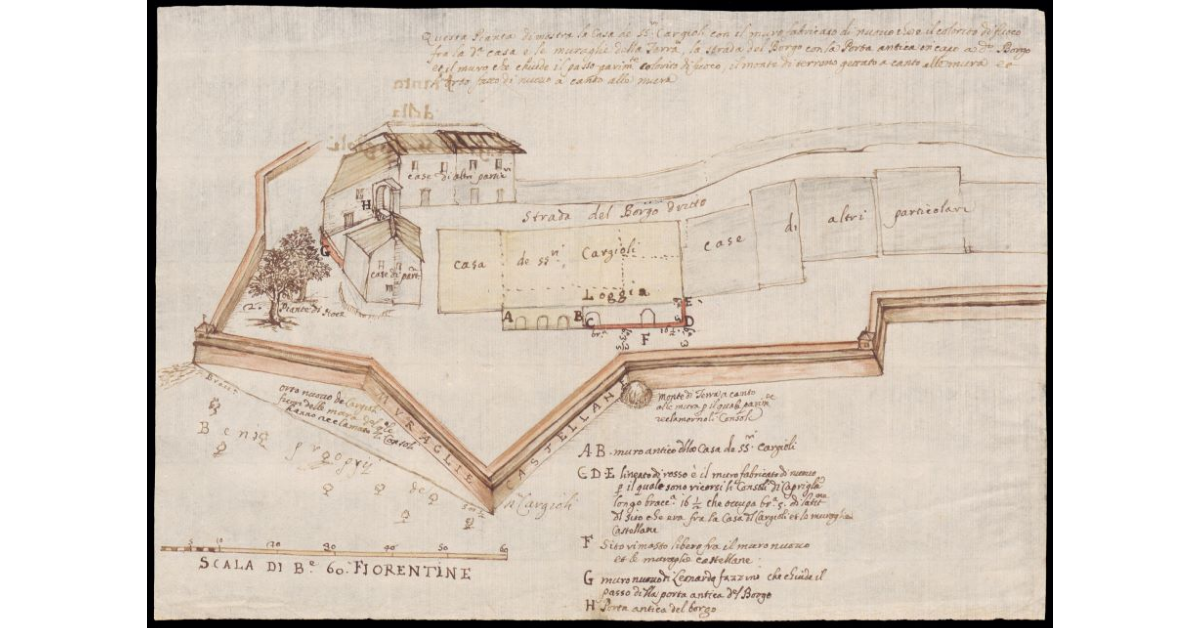 Questa Pianta dimostra la Casa de SS.ri Cargioli con il muro fabricato di nuovo che è il colorito di fuoco
fra la d.a casa e le muraglie della Terra, la strada del Borgo con la Porta antica in capo a d.o Borgo
et il muro che chiude il passo parim.te colorito di fuoco, il monte di terreno gettato a canto alle mura e
l'orto fatto di nuovo a canto alle mura
case di altri partic.ri
H
Strada del Borgo dritto
G
case di part.ri
casa de SS.ri Cargioli
case di altri particolari
Loggia
A B C D E
F
Piante di Noce
Orto nuovo de Cargioli
fuori delle mura del q.le
hanno reclamato li Consoli
MVRAGLIE CASTELLANE
Monte di Terra a canto
alle mura p il quale parim.te
reclamorno li Consoli
Beni proprij de SS.ri Cargioli
A B - muro antico della Casa de SS.ri Cargioli
C D E lineato di rosso è il muro fabricato di nuovo
p il quale sono ricorsi li Consoli di Caprigla
longo bracc.a 16 ½ che occupa br.a 5. di
di sito che era fra la Casa di Cargioli et le muraglie
Castellane
F Sito rimasto libero fra il muro nuovo
et le muraglie castellane
G muro nuovo di Leonardo fazzino che chiude il
passo della porta antica del Borgo
H Porta antica del borgo
5 10 20 30 40 50 60
SCALA DI B.e 60. FIORENTINE